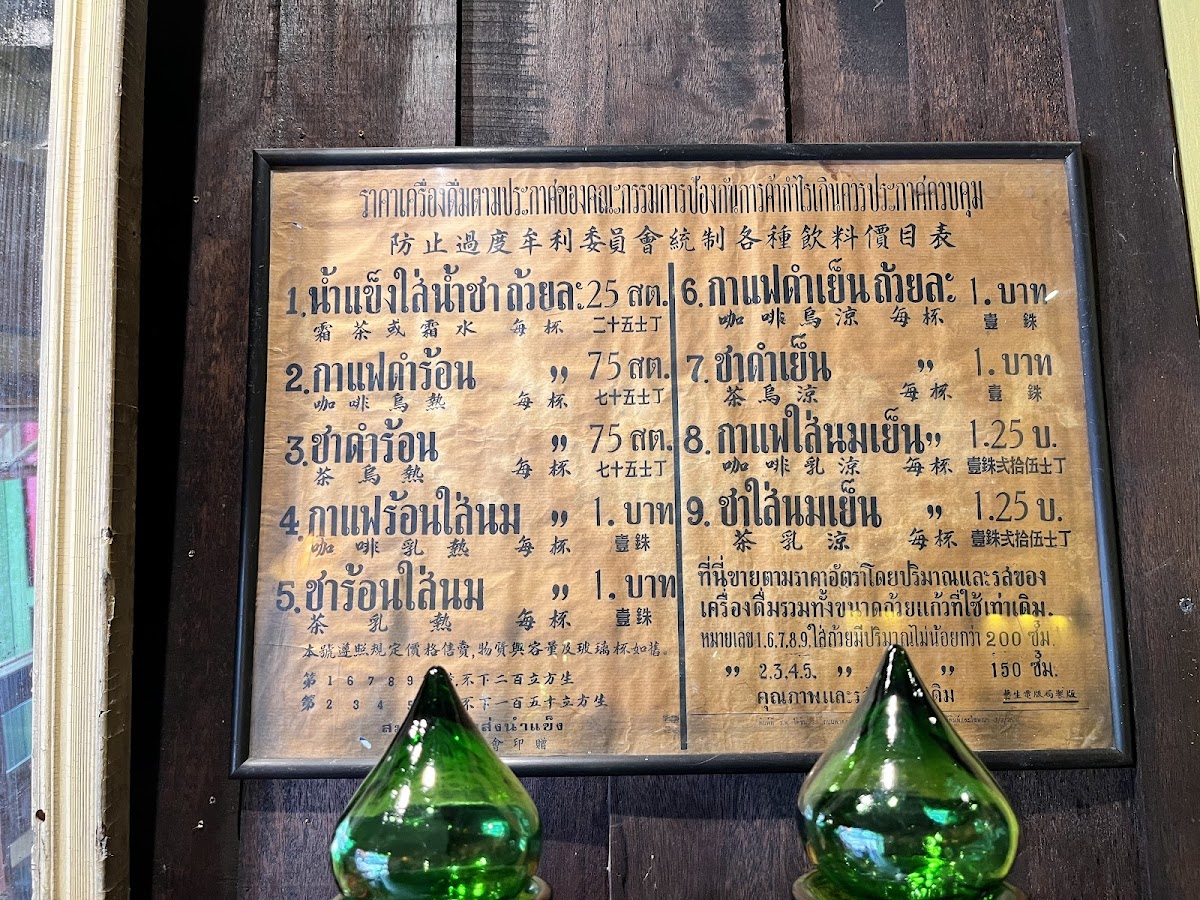 ราคาเครื่องดื่มตามประกาศของคณะกรรมการป้องกันการค้ากำไรเกินควรประกาศควบคุม
防止過度牟利委員會統制各種飲料價目表
1. น้ำแข็งใส่น้ำชา ถ้วยละ 25 สต.
霜茶或霜水 每杯 二十五士丁
2. กาแฟดำร้อน " 75 สต.
咖啡烏熱 每杯 七十五士丁
3. ชาดำร้อน " 75 สต.
茶烏熱 每杯 七十五士丁
4. กาแฟร้อนใส่นม " 1. บาท
咖啡乳熱 每杯 壹銖
5. ชาร้อนใส่นม " 1. บาท
茶乳熱 每杯 壹銖
本號遵照規定價格售賣,物質與容量及玻璃杯如舊。
第 1 6 7 8 9 不下二百立方生
第 2 3 4 5 不下一百五十立方生
ส่งน้ำแข็ง
會印贈
6. กาแฟดำเย็น ถ้วยละ 1. บาท
咖啡烏涼 每杯 壹銖
7. ชาดำเย็น " 1. บาท
茶烏涼 每杯 壹銖
8. กาแฟใส่นมเย็น " 1.25 บ.
咖啡乳涼 每杯 壹銖弍拾伍士丁
9. ชาใส่นมเย็น " 1.25 บ.
茶乳涼 每杯 壹銖弍拾伍士丁
ที่นี่ขายตามราคาอัตราโดยปริมาณและรสของ
เครื่องดื่มรวมทั้งขนาดถ้วยแก้วที่ใช้เท่าเดิม.
หมายเลข 1.6.7.8.9. ใส่ถ้วยมีปริมาณไม่น้อยกว่า 200 ซ.ม.
" 2.3.4.5. " " 150 ซ.ม.
คุณภาพและร ดิม